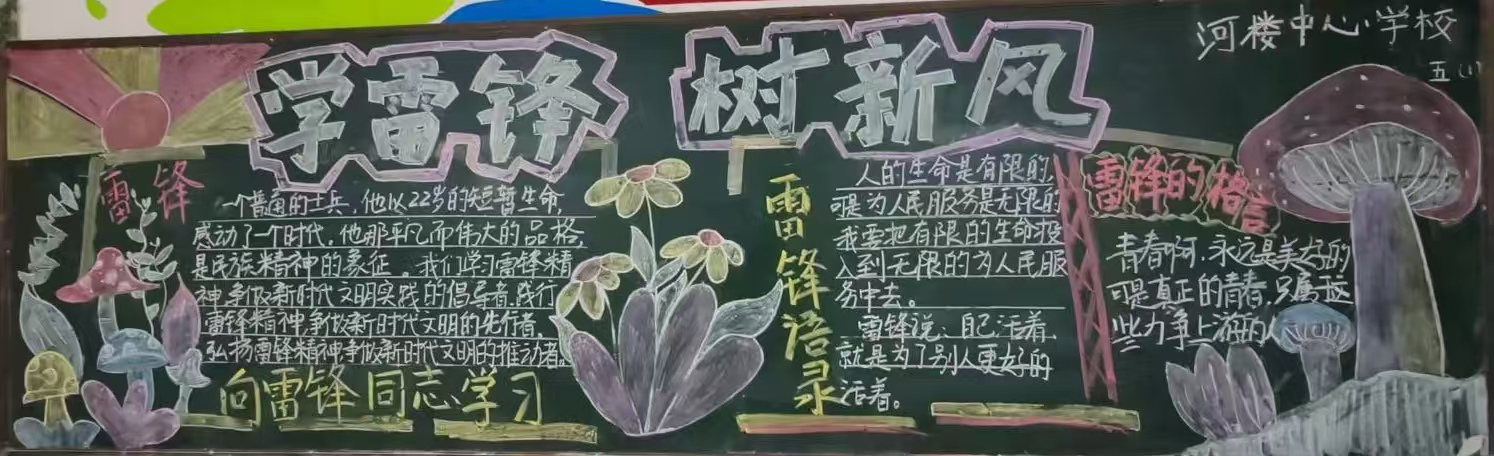 学雷锋 树新风
河楼中心小学校
五(1)
雷锋
一个普通的士兵，他以22岁的短暂生命，
感动了一个时代，他那平凡而伟大的品格，
是民族精神的象征。我们学习雷锋精
神,争做新时代文明实践的倡导者,践行
雷锋精神,争做新时代文明的先行者,
弘扬雷锋精神争做新时代文明的推动者。
向雷锋同志学习
雷锋语录
人的生命是有限的,
可是为人民服务是无限的
我要把有限的生命投
入到无限的为人民服
务中去。
雷锋说：自己活着，
就是为了别人更好的
活着。
雷锋的格言
青春啊，永远是美好的
可是真正的青春，只属于这
些力争上游的人